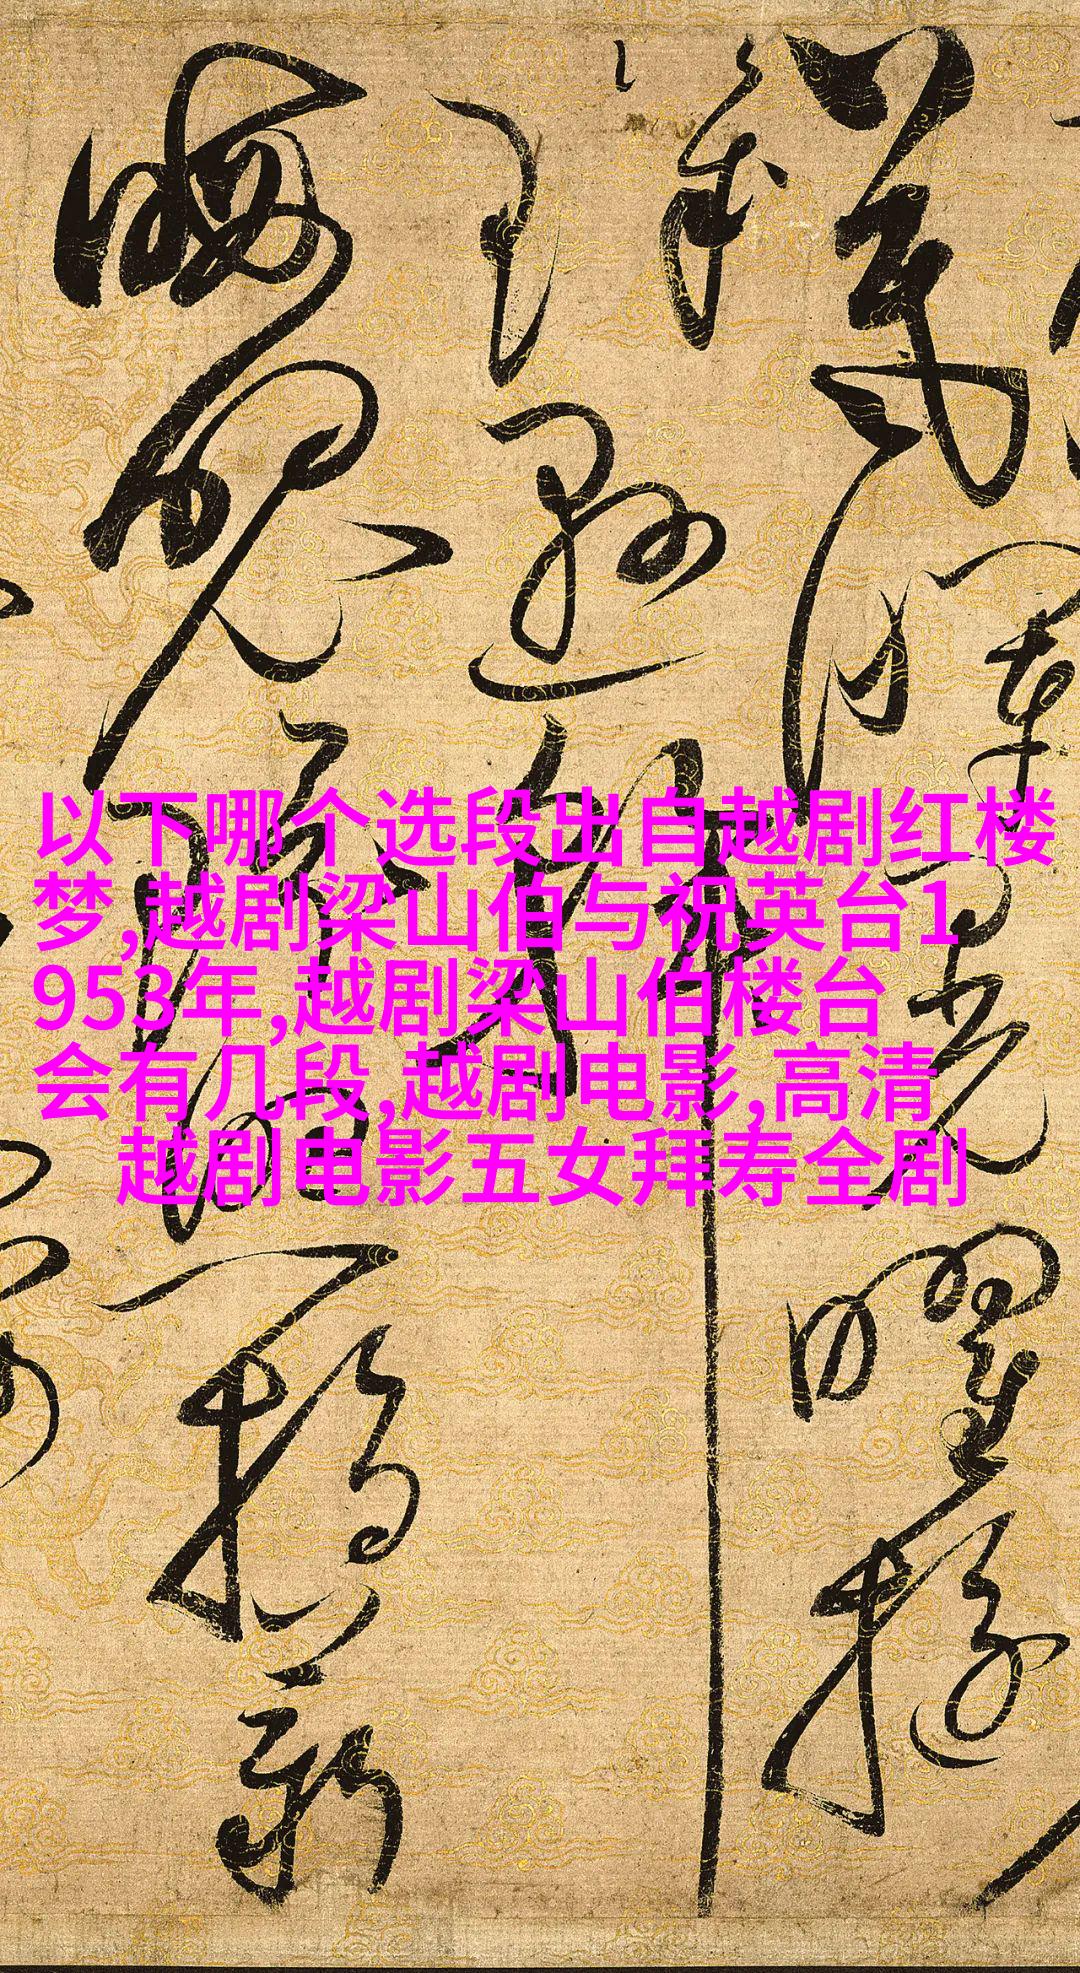 以下哪个选段出自越剧红楼
梦,越剧梁山伯与祝英台1
953年,越剧梁山伯楼台
会有几段,越剧电影,高清
越剧电影五女拜寿全剧
曜璇
璣懸斡
晦魄環照指薪